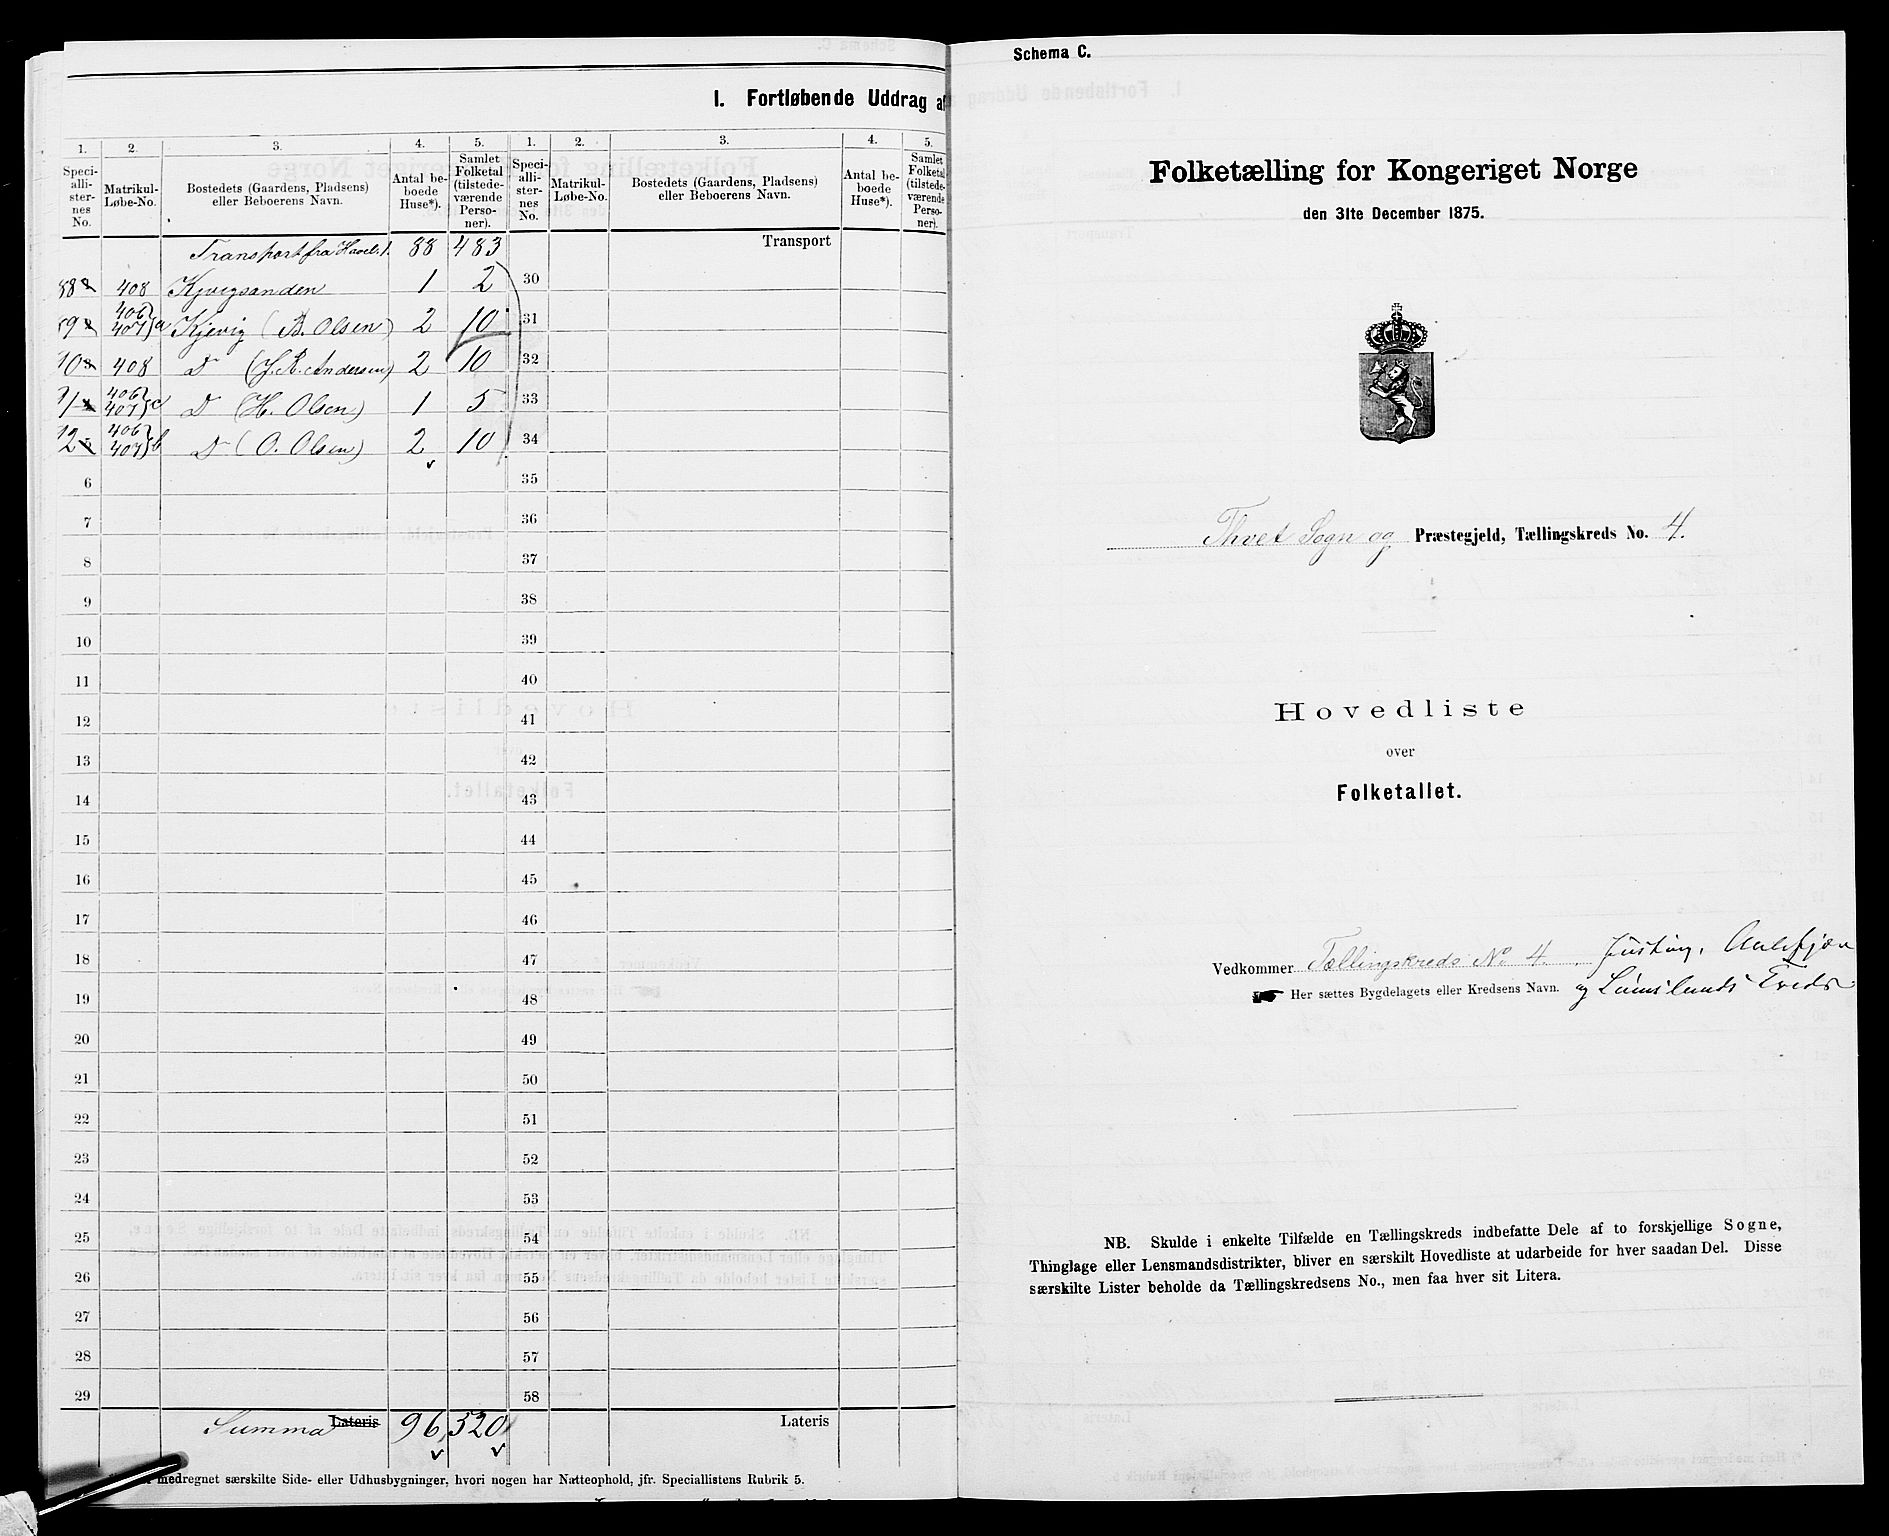 I. Fortløbende Uddrag af
1. 2. 3. 4. 5. 1. 2. 3. 4. 5.
Speciallisternes No. Matrikul-Løbe-No. Bostedets (Gaardens, Pladsens) eller Beboerens Navn. Antal beboede Huse*). Samlet Folketal (tilstedeværende Personer). Speciallisternes No. Matrikul-Løbe-No. Bostedets (Gaardens, Pladsens) eller Beboerens Navn. Antal beboede Huse*). Samlet Folketal (tilstedeværende Personer).
Transport fra 88 483 Transport
408 Kjevigsanden 1 2 30
406 407 a Kjevig (B. Olsen) 2 10 31
408 D (J. R. Andersen) 2 10 32
406 407 c D (H. Olsen) 1 5 33
406 407 b D (O. Olsen) 2 10 34
6 35
7 36
8 37
9 38
10 39
11 40
12 41
13 42
14 43
15 44
16 45
17 46
18 47
19 48
20 49
21 50
22 51
23 52
24 53
25 54
26 55
27 56
28 57
29 58
Summa Lateris 96 520 Lateris
medregnet særskilte Side- eller Udhusbygninger, hvori nogen har Natteophold, jfr. Speciallistens Rubrik 5.
Schema C.
Folketælling for Kongeriget Norge
den 31te December 1875.
Thvet Sogn og Præstegjeld, Tællingskreds No. 4.
Hovedliste
over
Folketallet.
Vedkommer Tællingskreds No. 4.
Her sættes Bygdelagets eller Kredsens Navn. og Kreds
NB. Skulde i enkelte Tilfælde en Tællingskreds indbefatte Dele af to forskjellige Sogne,
Thinglage eller Lensmandsdistrikter, bliver en særskilt Hovedliste at udarbeide for hver saadan Del. Disse
særskilte Lister beholde da Tællingskredsens No., men faa hver sit Litera.